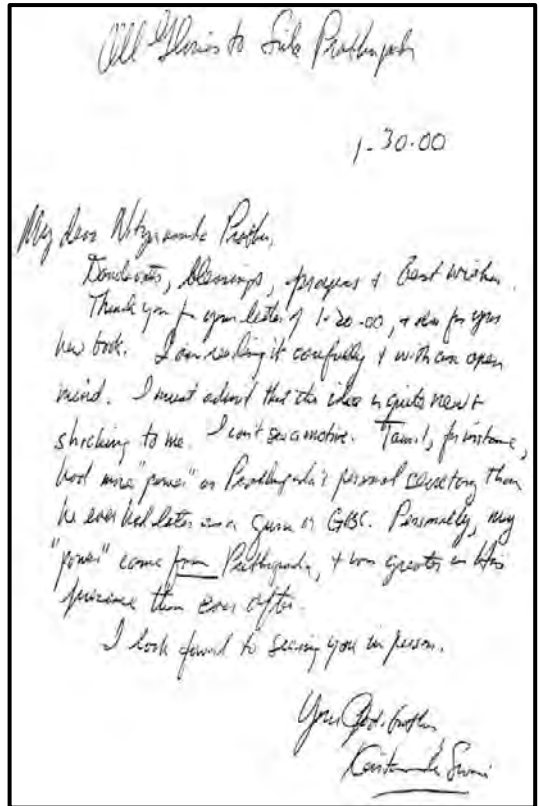 All Glories to Srila Prabhupada
1-30-00
My dear Nityananda Prabhu,
Dandavats, blessings, prayers & Best wishes.
Thank you for your letter of 1-20-00, & also for your
new book. I am reading it carefully & with an open
mind. I must admit that the idea is quite new &
shocking to me. I can't see a motive. Tamal, for instance,
had more "power" as Prabhupada's personal secretary than
he ever had later as a guru or GBC. Personally, my
"power" came from Prabhupada, & was greater in His
presence than ever after.
I look forward to seeing you in person.
Your God-brother,
Kirtanananda Swami